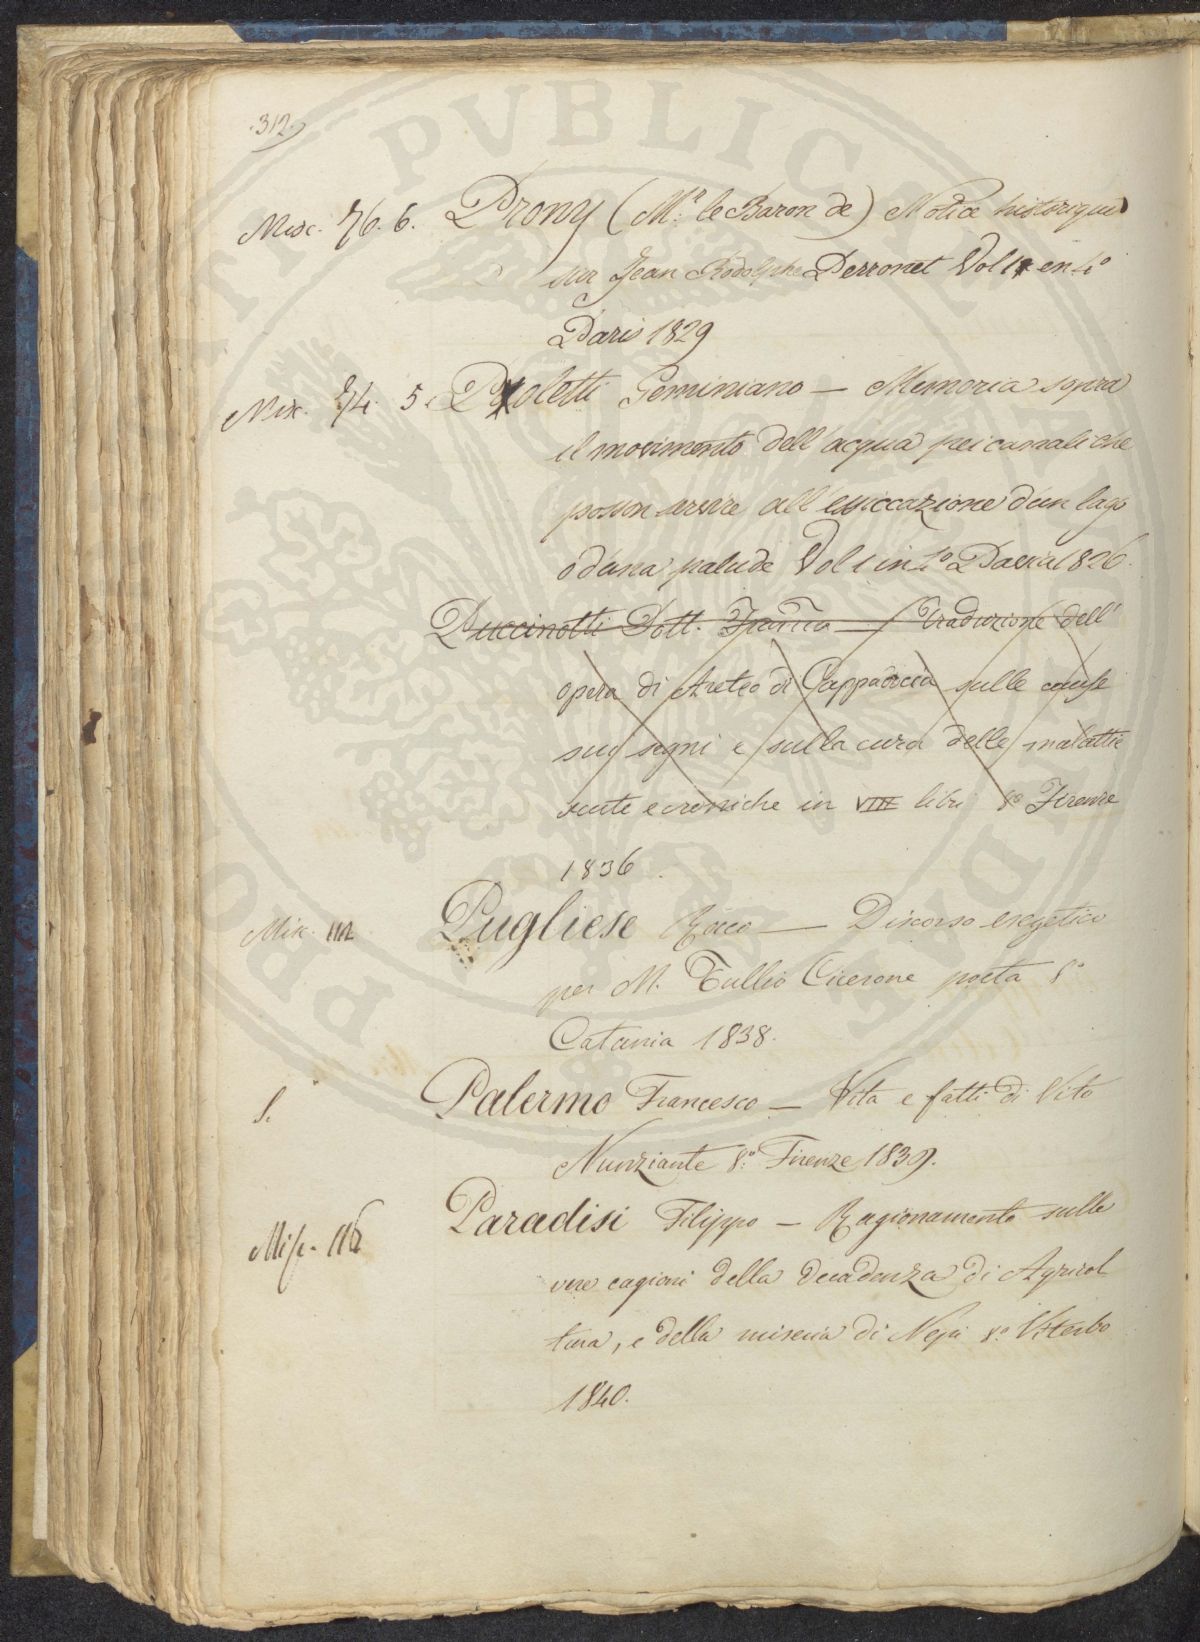 .312.
Misc. 76. 6. Prony (M.r le Baron de) Notice historique
sur Jean Rodolphe Perronet Vol 1 en 4.o
Paris 1829
Misc. 74. 5. Poletti Geminiano — Memoria sopra
il movimento dell'acqua pei canali che
posson servire all'essiccazione d'un lago
o d'una palude Vol 1 in 4.o Pavia 1826.
Puccinotti Dott. Franco — Traduzione dell'
opera di Areteo di Cappadocia sulle cause
sui segni e sulla cura delle malattie
acute e croniche in VIII libri 8.o Firenze
1836.
Misc. 112 Pugliese Rocco — Discorso esegetico
per M. Tullio Cicerone poeta 8.o
Catania 1838.
S. Palermo Francesco — Vita e fatti di Vito
Nunziante 8.o Firenze 1839.
Misc. 116 Paradisi Filippo — Ragionamento sulle
vere cagioni della decadenza di Agricol
tura, e della miseria di Nepi 8.o Viterbo
1840.
PROPRIETATI PVBLICAE